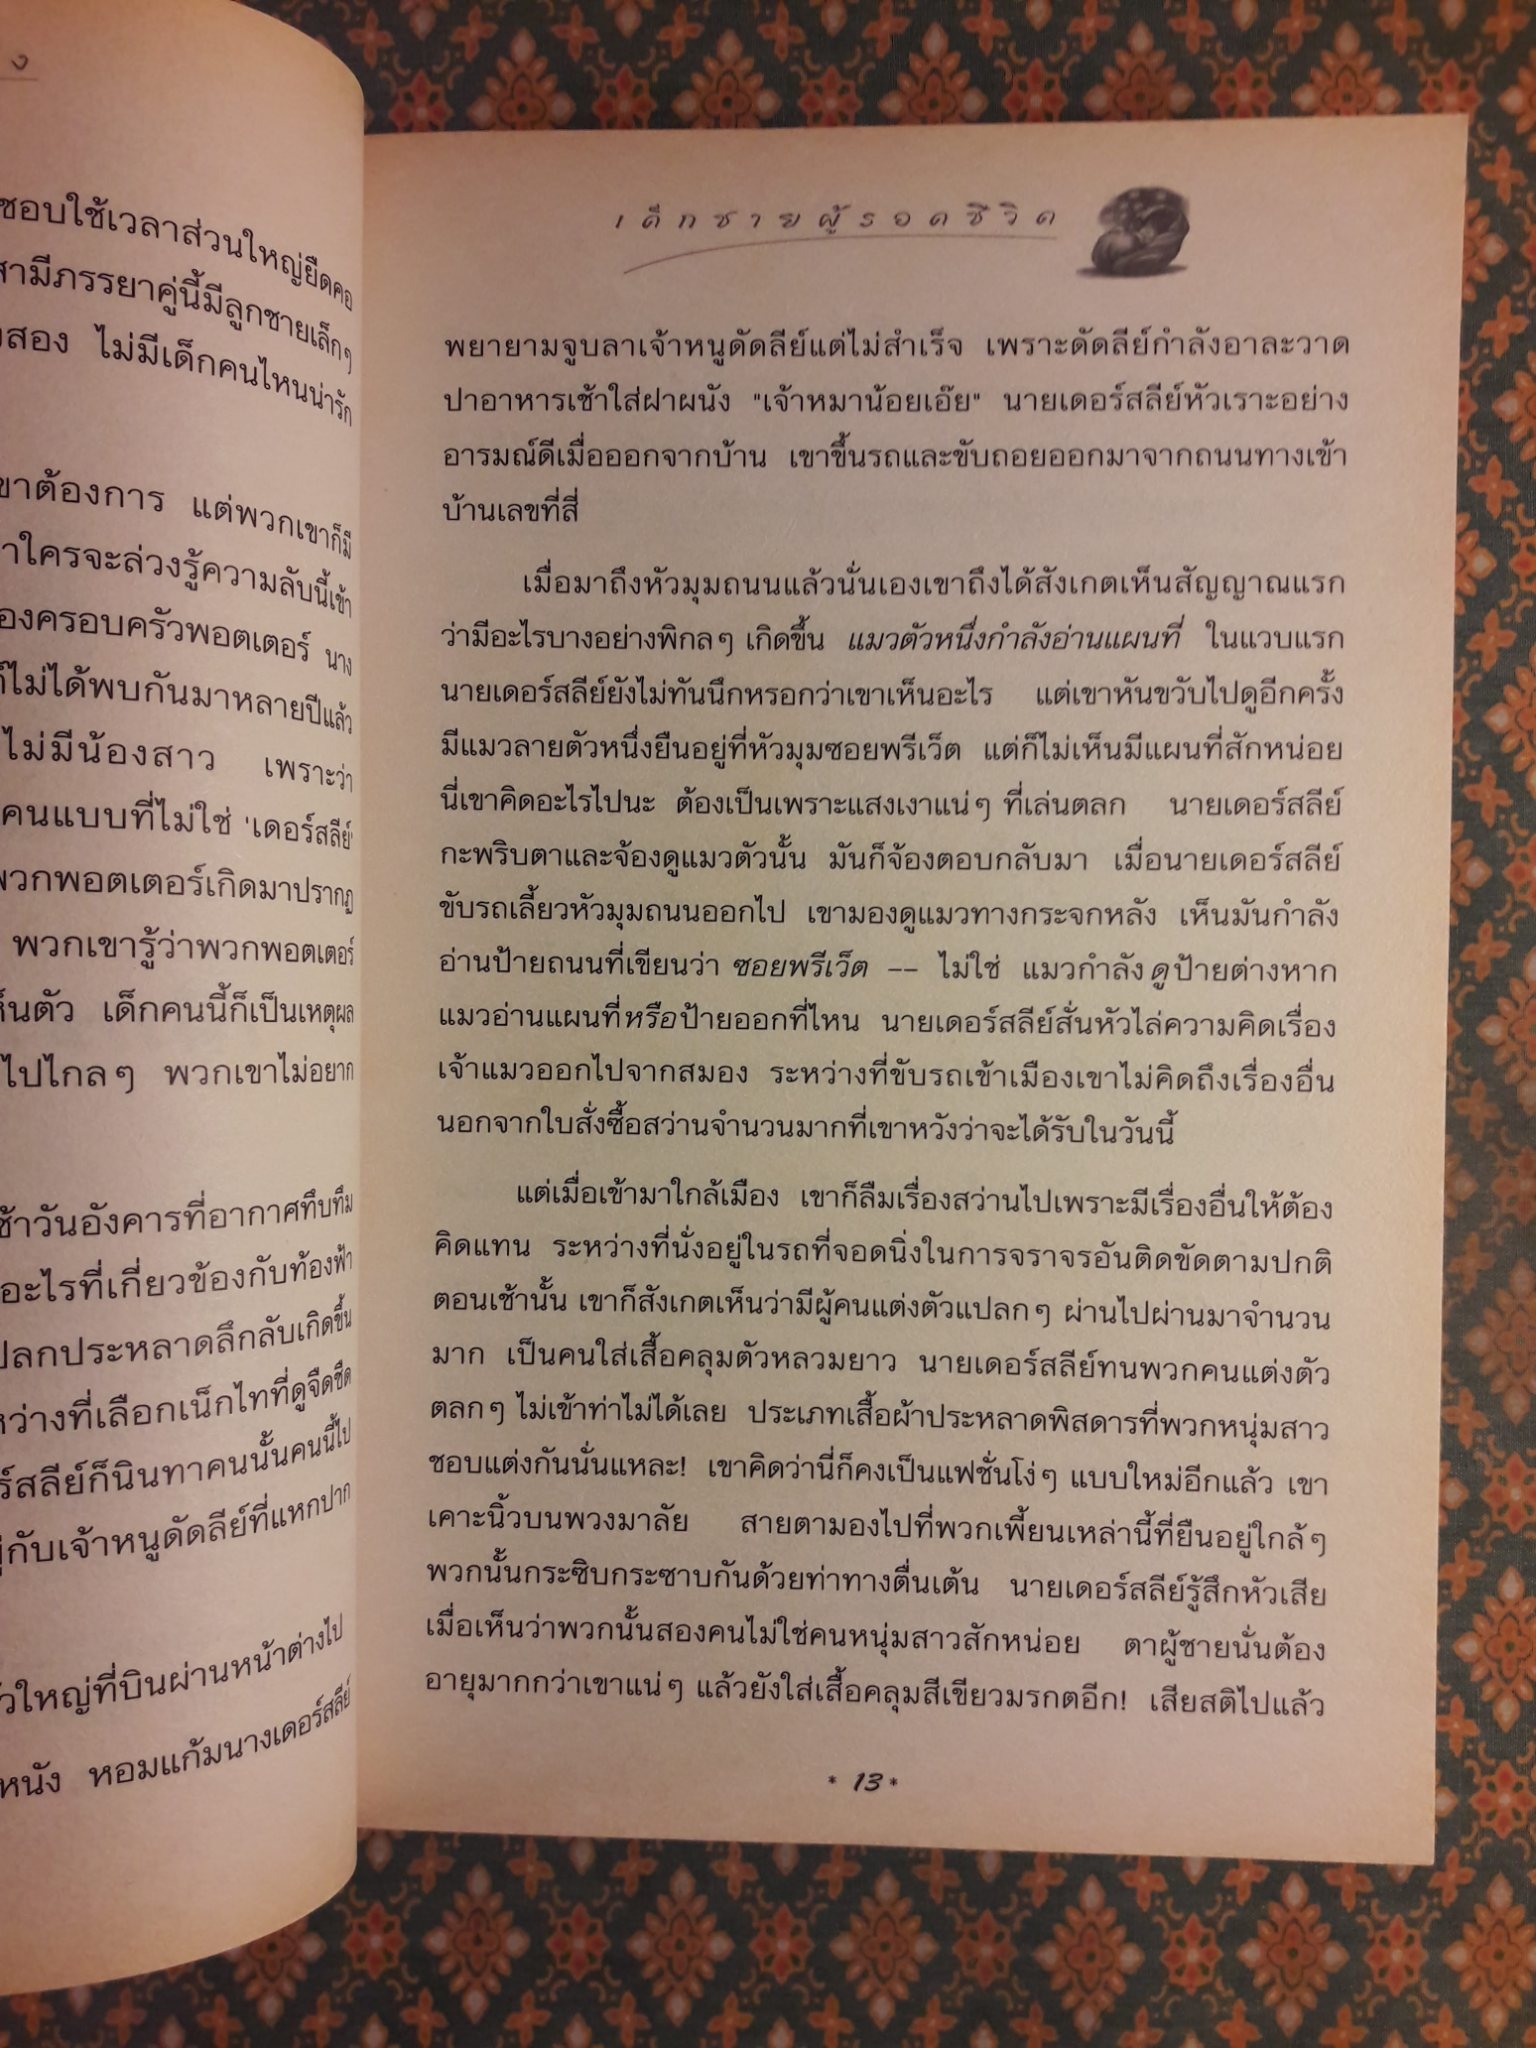 ง
ชอบใช้เวลาส่วนใหญ่ยืดคอ
สามีภรรยาคู่นี้มีลูกชายเล็กๆ
สอง ไม่มีเด็กคนไหนน่ารัก
ขาต้องการ แต่พวกเขาก็มี
าใครจะล่วงรู้ความลับนี้เข้า
องครอบครัวพอตเตอร์ นาง
ไม่ได้พบกันมาหลายปีแล้ว
ไม่มีน้องสาว เพราะว่า
คนแบบที่ไม่ใช่ 'เดอร์สลีย์'
พวกพอตเตอร์เกิดมาปรากฏ
พวกเขารู้ว่าพวกพอตเตอร์
ห็นตัว เด็กคนนี้ก็เป็นเหตุผล
ไปไกลๆ พวกเขาไม่อยาก
ช้าวันอังคารที่อากาศทึบทึม
อะไรที่เกี่ยวข้องกับท้องฟ้า
ปลกประหลาดลึกลับเกิดขึ้น
หว่างที่เลือกเน็กไทที่ดูจืดชืด
ร์สลีย์ก็นินทาคนนั้นคนนี้ไป
กับเจ้าหนูดัดลีย์ที่แหกปาก
ัวใหญ่ที่บินผ่านหน้าต่างไป
หนัง หอมแก้มนางเดอร์สลีย์
เด็กชายผู้รอดชีวิต
พยายามจูบลาเจ้าหนูดัดลีย์แต่ไม่สำเร็จ เพราะดัดลีย์กำลังอาละวาด
ปาอาหารเช้าใส่ฝาผนัง "เจ้าหมาน้อยเอ๊ย" นายเดอร์สลีย์หัวเราะอย่าง
อารมณ์ดีเมื่อออกจากบ้าน เขาขึ้นรถและขับถอยออกมาจากถนนทางเข้า
บ้านเลขที่สี่
เมื่อมาถึงหัวมุมถนนแล้วนั่นเองเขาถึงได้สังเกตเห็นสัญญาณแรก
ว่ามีอะไรบางอย่างพิกลๆ เกิดขึ้น แมวตัวหนึ่งกำลังอ่านแผนที่ ในแวบแรก
นายเดอร์สลีย์ยังไม่ทันนึกหรอกว่าเขาเห็นอะไร แต่เขาหันขวับไปดูอีกครั้ง
มีแมวลายตัวหนึ่งยืนอยู่ที่หัวมุมซอยพรีเว็ต แต่ก็ไม่เห็นมีแผนที่สักหน่อย
นี่เขาคิดอะไรไปนะ ต้องเป็นเพราะแสงเงาแน่ๆ ที่เล่นตลก นายเดอร์สลีย์
กะพริบตาและจ้องดูแมวตัวนั้น มันก็จ้องตอบกลับมา เมื่อนายเดอร์สลีย์
ขับรถเลี้ยวหัวมุมถนนออกไป เขามองดูแมวทางกระจกหลัง เห็นมันกำลัง
อ่านป้ายถนนที่เขียนว่า ซอยพรีเว็ต -- ไม่ใช่ แมวกำลังดูป้ายต่างหาก
แมวอ่านแผนที่หรือป้ายออกที่ไหน นายเดอร์สลีย์สั่นหัวไล่ความคิดเรื่อง
เจ้าแมวออกไปจากสมอง ระหว่างที่ขับรถเข้าเมืองเขาไม่คิดถึงเรื่องอื่น
นอกจากใบสั่งซื้อสว่านจำนวนมากที่เขาหวังว่าจะได้รับในวันนี้
แต่เมื่อเข้ามาใกล้เมือง เขาก็ลืมเรื่องสว่านไปเพราะมีเรื่องอื่นให้ต้อง
คิดแทน ระหว่างที่นั่งอยู่ในรถที่จอดนิ่งในการจราจรอันติดขัดตามปกติ
ตอนเช้านั้น เขาก็สังเกตเห็นว่ามีผู้คนแต่งตัวแปลกๆ ผ่านไปผ่านมาจำนวน
มาก เป็นคนใส่เสื้อคลุมตัวหลวมยาว นายเดอร์สลีย์ทนพวกคนแต่งตัว
ตลกๆ ไม่เข้าท่าไม่ได้เลย ประเภทเสื้อผ้าประหลาดพิสดารที่พวกหนุ่มสาว
ชอบแต่งกันนั่นแหละ! เขาคิดว่านี่ก็คงเป็นแฟชั่นโง่ๆ แบบใหม่อีกแล้ว เขา
เคาะนิ้วบนพวงมาลัย สายตามองไปที่พวกเพี้ยนเหล่านี้ที่ยืนอยู่ใกล้ๆ
พวกนั้นกระซิบกระซาบกันด้วยท่าทางตื่นเต้น นายเดอร์สลีย์รู้สึกหัวเสีย
เมื่อเห็นว่าพวกนั้นสองคนไม่ใช่คนหนุ่มสาวสักหน่อย ตาผู้ชายนั่นต้อง
อายุมากกว่าเขาแน่ๆ แล้วยังใส่เสื้อคลุมสีเขียวมรกตอีก! เสียสติไปแล้ว
* 13 *